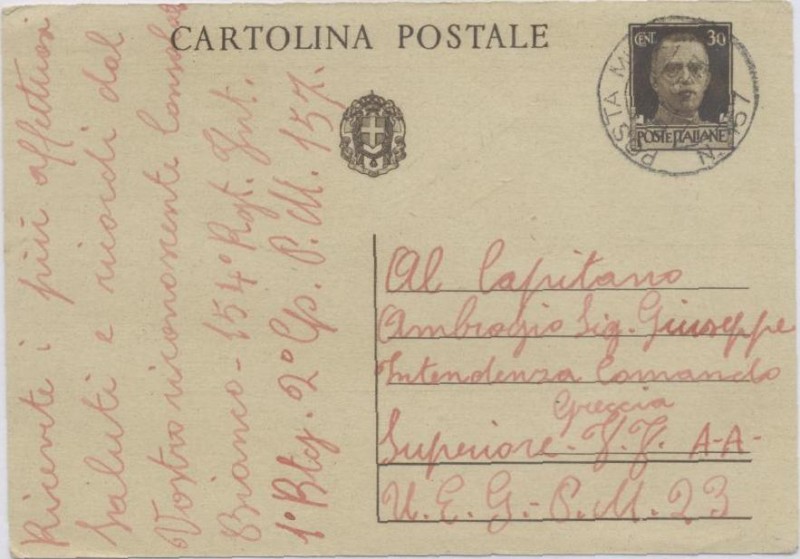 CARTOLINA POSTALE
CENT. 30
POSTE ITALIANE
POSTA N. 157
Ricevete i più affettuosi
saluti e ricordi dal
Vostro riconoscente
Bianco - 154° Rgt. Fnt.
1° Btg. 2° Cp. P. M. 157.
Al Capitano
Ambrogio Sig. Giuseppe
Intendenza Comando
Grecia
Superiore - F.F. A-A-
U. E. G. - P. M. 23